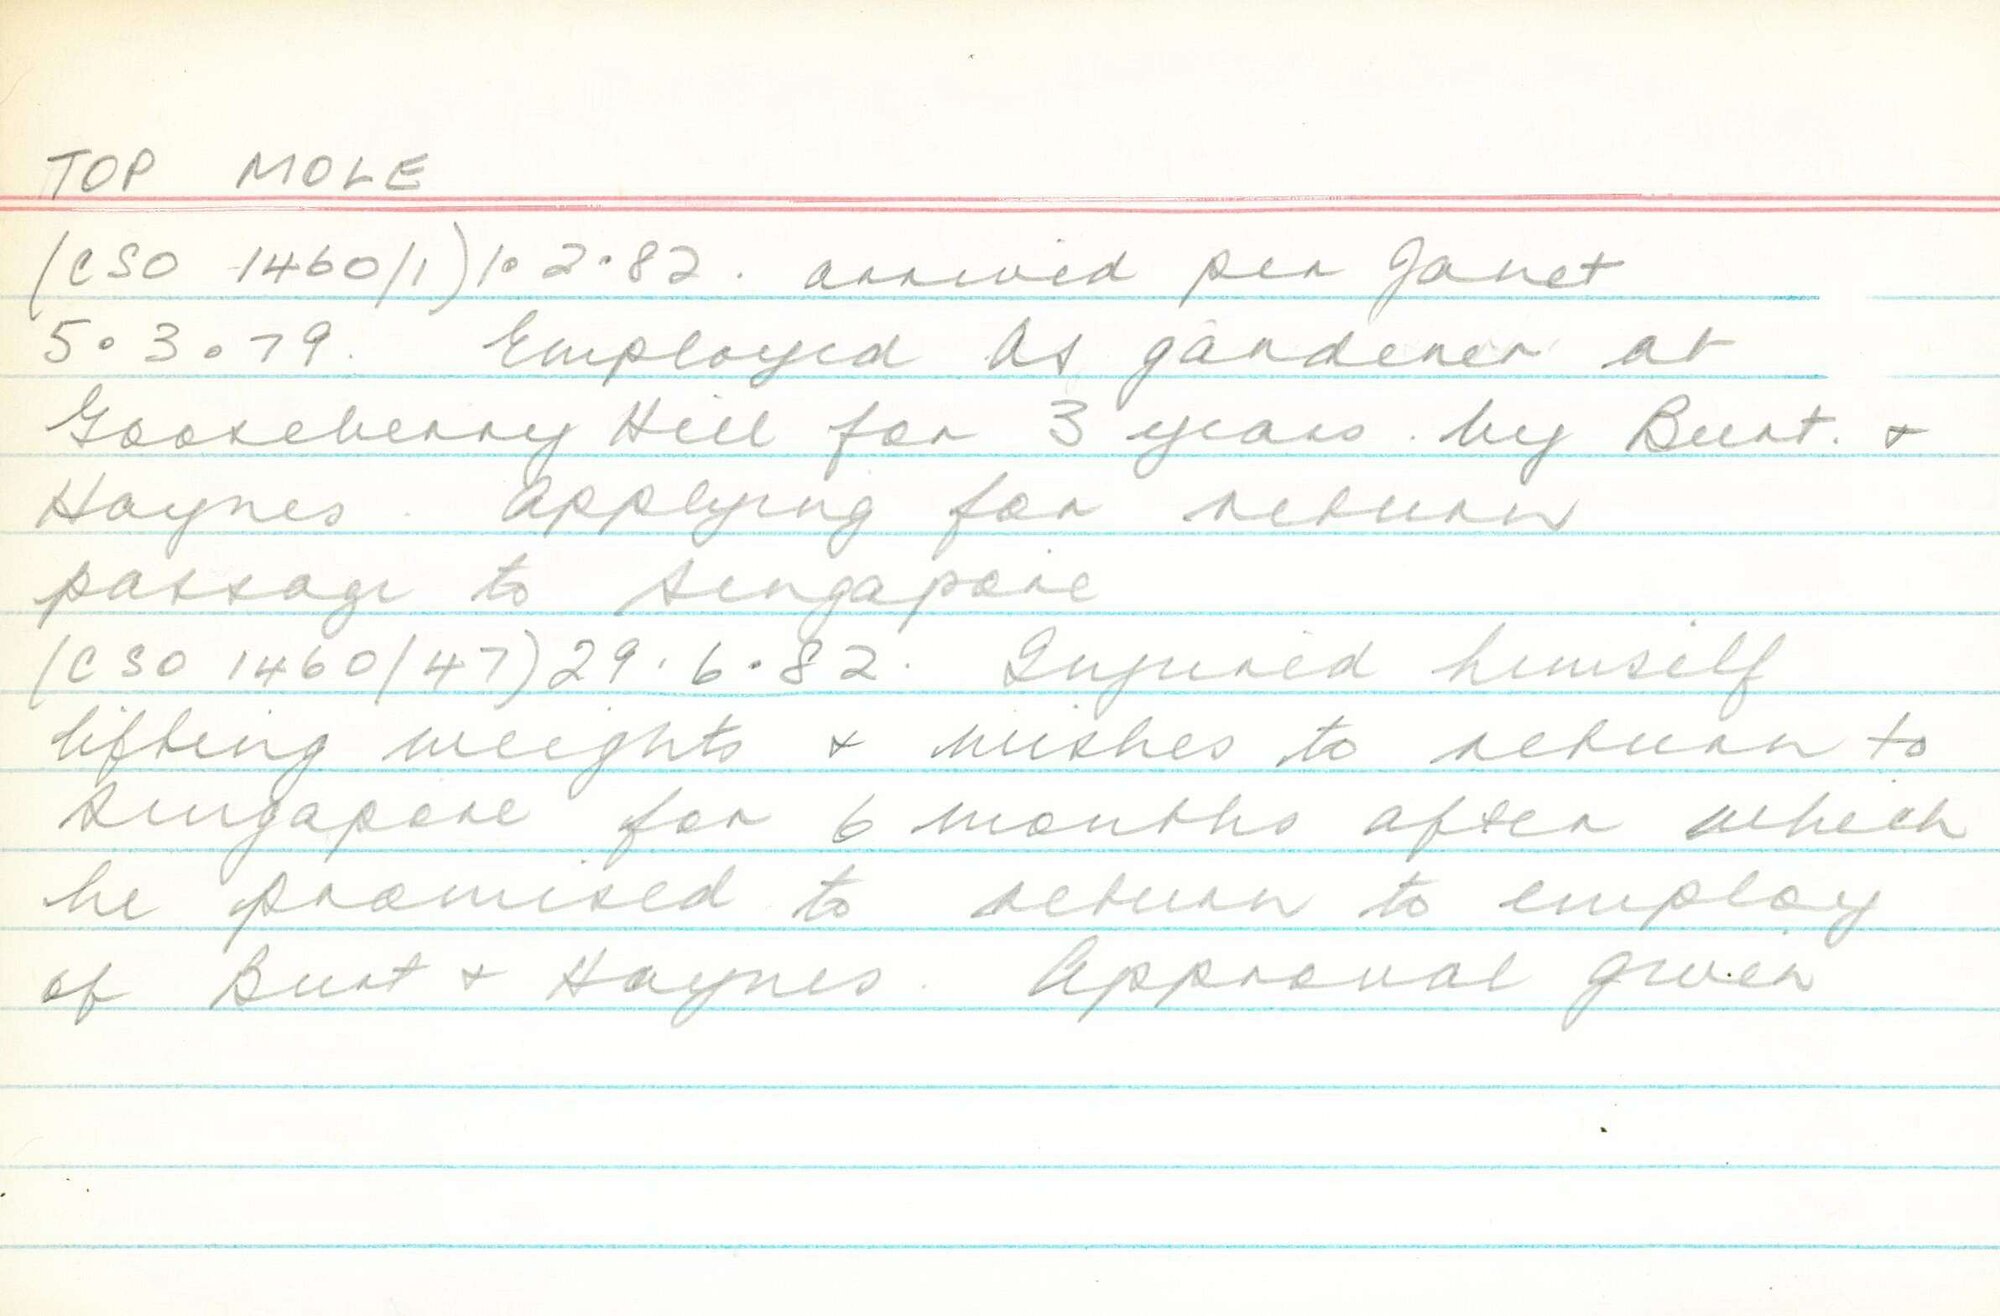 TOP MOLE
(CSO 1460/1) 1.2.82. arrived per Janet
5.3.79. Employed as gardener at
Gooseberry Hill for 3 years by Burt. &
Haynes. Applying for return
passage to Singapore
(CSO 1460/47) 29.6.82. Injured himself
lifting weights & wishes to return to
Singapore for 6 months after which
he promised to return to employ
of Burt & Haynes. Approval given